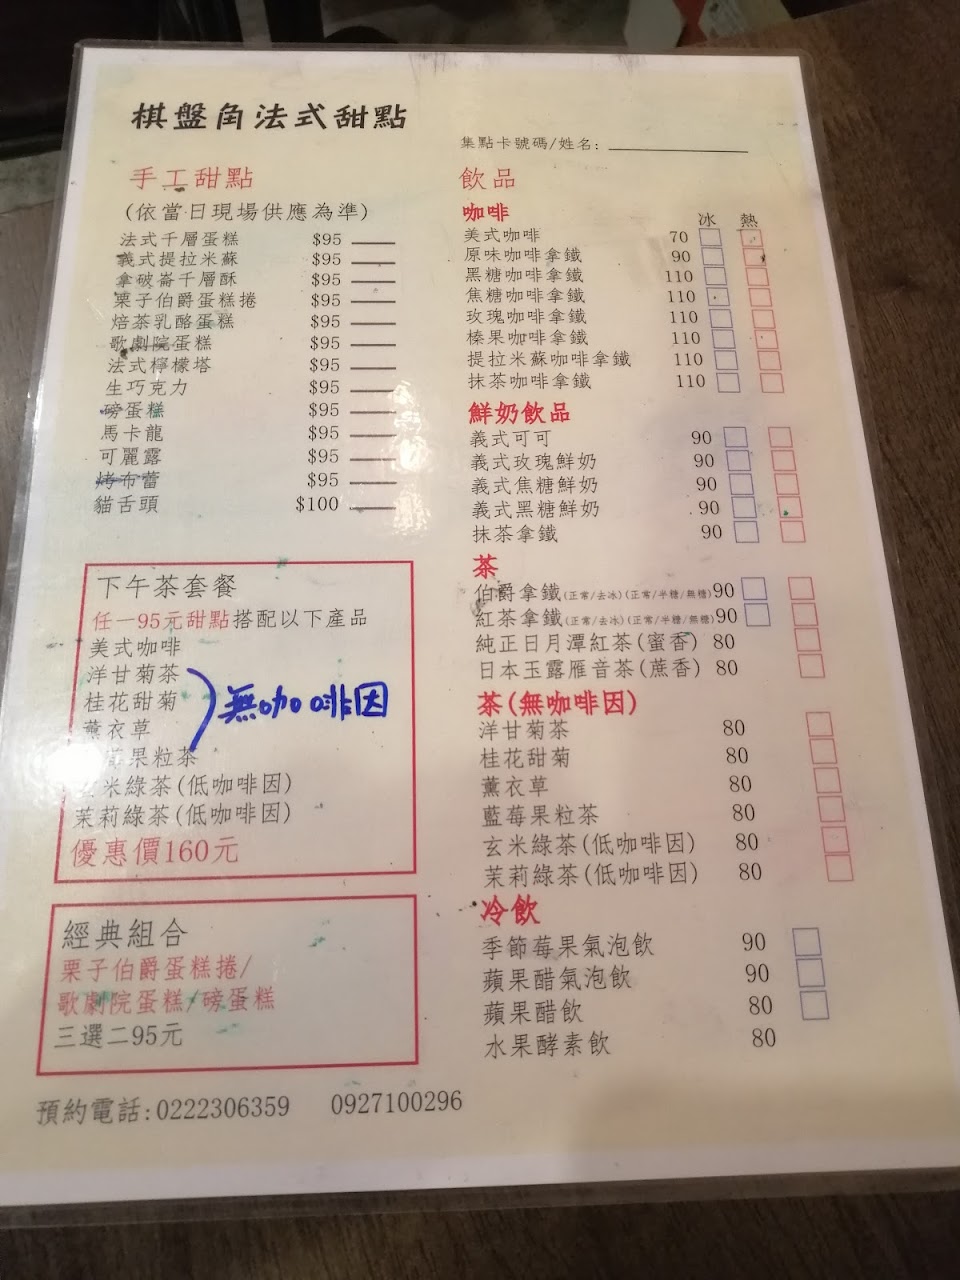 棋盤角法式甜點
集點卡號碼/姓名:
手工甜點
(依當日現場供應為準)
法式千層蛋糕 $95
義式提拉米蘇 $95
拿破崙千層酥 $95
栗子伯爵蛋糕捲 $95
焙茶乳酪蛋糕 $95
歌劇院蛋糕 $95
法式檸檬塔 $95
生巧克力 $95
磅蛋糕 $95
馬卡龍 $95
可麗露 $95
烤布蕾 $95
貓舌頭 $100
下午茶套餐
任一95元甜點搭配以下產品
美式咖啡
洋甘菊茶
桂花甜菊
薰衣草
無咖啡因
莓果粒茶
玄米綠茶(低咖啡因)
茉莉綠茶(低咖啡因)
優惠價160元
經典組合
栗子伯爵蛋糕捲/
歌劇院蛋糕/磅蛋糕
三選二95元
飲品
咖啡 冰 熱
美式咖啡 70
原味咖啡拿鐵 90
黑糖咖啡拿鐵 110
焦糖咖啡拿鐵 110
玫瑰咖啡拿鐵 110
榛果咖啡拿鐵 110
提拉米蘇咖啡拿鐵 110
抹茶咖啡拿鐵 110
鮮奶飲品
義式可可 90
義式玫瑰鮮奶 90
義式焦糖鮮奶 90
義式黑糖鮮奶 90
抹茶拿鐵 90
茶
伯爵拿鐵(正常/去冰)(正常/半糖/無糖)90
紅茶拿鐵(正常/去冰)(正常/半糖/無糖)90
純正日月潭紅茶(蜜香) 80
日本玉露雁音茶(蔗香) 80
茶(無咖啡因)
洋甘菊茶 80
桂花甜菊 80
薰衣草 80
藍莓果粒茶 80
玄米綠茶(低咖啡因) 80
茉莉綠茶(低咖啡因) 80
冷飲
季節莓果氣泡飲 90
蘋果醋氣泡飲 90
蘋果醋飲 80
水果酵素飲 80
預約電話:0222306359 0927100296